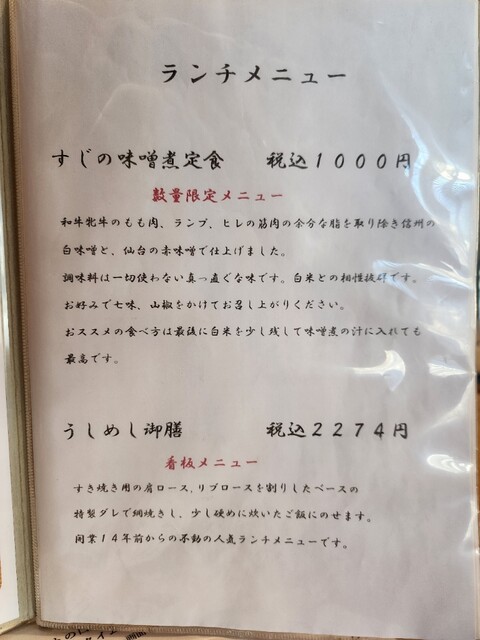 ランチメニュー
すじの味噌煮定食 税込1000円
数量限定メニュー
和牛牝牛のもも肉、ランプ、ヒレの筋肉の余分な脂を取り除き信州の
白味噌と、仙台の赤味噌で仕上げました。
調味料は一切使わない真っ直ぐな味です。白米との相性抜群です。
お好みで七味、山椒をかけてお召し上がりください。
おススメの食べ方は最後に白米を少し残して味噌煮の汁に入れても
最高です。
うしめし御膳 税込2274円
看板メニュー
すき焼き用の肩ロース、リブロースを割りしたベースの
特製ダレで網焼きし、少し硬めに炊いたご飯にのせます。
開業14年前からの不動の人気ランチメニューです。